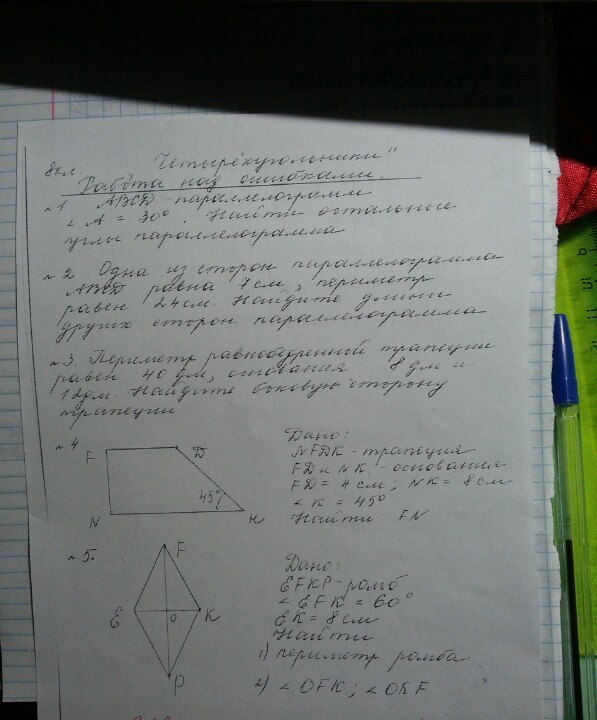 8кл. Четырёхугольники"
Работа над ошибками.
№1 ABCD - параллелограмм
∠A = 30°. Найти остальные
углы параллелограмма
№2 Одна из сторон параллелограмма
ABCD равна 7см, периметр
равен 24см. Найдите длины
других сторон параллелограмма
№3. Периметр равнобедренной трапеции
равен 40 дм, основания 8 дм и
12дм. Найдите боковую сторону
трапеции
№4
F D
45°
N K
Дано:
NFDK - трапеция
FD и NK - основания
FD = 4 см; NK = 8 см
∠K = 45°
Найти FN
№5.
F
E O K
P
Дано:
EFKP - ромб
∠EFK = 60°
EK = 8 см
Найти
1) периметр ромба
2) ∠OFK; ∠OEF